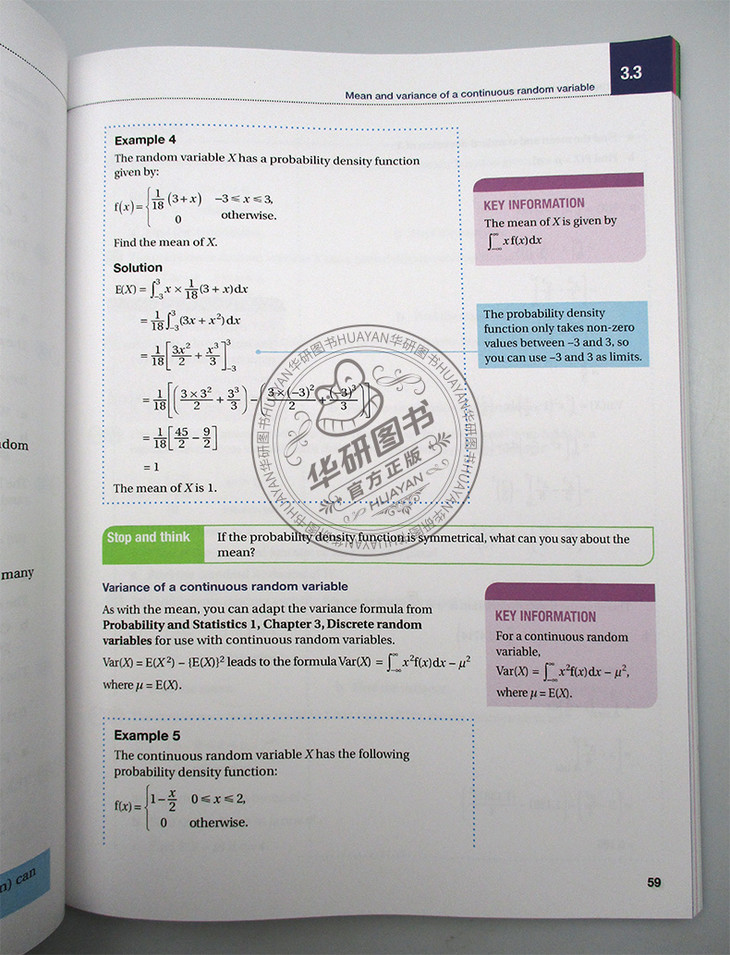 Mean and variance of a continuous random variable
3.3
Example 4
The random variable X has a probability density function
given by:
f(x) = { 1/18 (3 + x)   −3 ⩽ x ⩽ 3,
0   otherwise.
Find the mean of X.
Solution
E(X) = ∫₋₃³ x × 1/18 (3 + x) dx
= 1/18 ∫₋₃³ (3x + x²) dx
= 1/18 [3x²/2 + x³/3]₋₃³
= 1/18 [(3 × 3²/2 + 3³/3) − (3 × (−3)²/2 + (−3)³/3)]
= 1/18 [45/2 − 9/2]
= 1
The mean of X is 1.
KEY INFORMATION
The mean of X is given by
∫₋∞^∞ x f(x) dx
The probability density
function only takes non-zero
values between –3 and 3, so
you can use –3 and 3 as limits.
华研图书HUAYAN华研图书HUAYAN华研图书HUAYAN
华研图书
官方正版
HUAYAN
Stop and think
If the probability density function is symmetrical, what can you say about the
mean?
Variance of a continuous random variable
As with the mean, you can adapt the variance formula from
Probability and Statistics 1, Chapter 3, Discrete random
variables for use with continuous random variables.
Var(X) = E(X²) − {E(X)}² leads to the formula Var(X) = ∫₋∞^∞ x²f(x) dx − μ²
where μ = E(X).
KEY INFORMATION
For a continuous random
variable,
Var(X) = ∫₋∞^∞ x²f(x) dx − μ²,
where μ = E(X).
Example 5
The continuous random variable X has the following
probability density function:
f(x) = { 1 − x/2   0 ⩽ x ⩽ 2,
0   otherwise.
59
dom
many
n) can